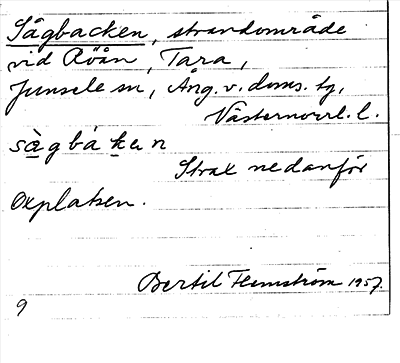 Sågbacken, strandområde
vid Röån, Tara,
Junsele sn, Ång. v. doms. tg,
Västernorrl. l.
sàgbáken
Strax nedanför
Oxplatsen.
Bertil Flemström 1957.
9